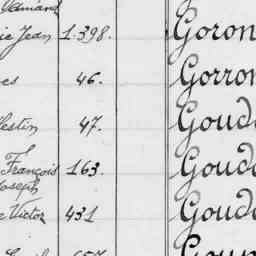 ie Jean 1.398. Goron
es 46. Gorron
lestin 47. Goud
François 163. Goud
Joseph
e Victor 431 Goud